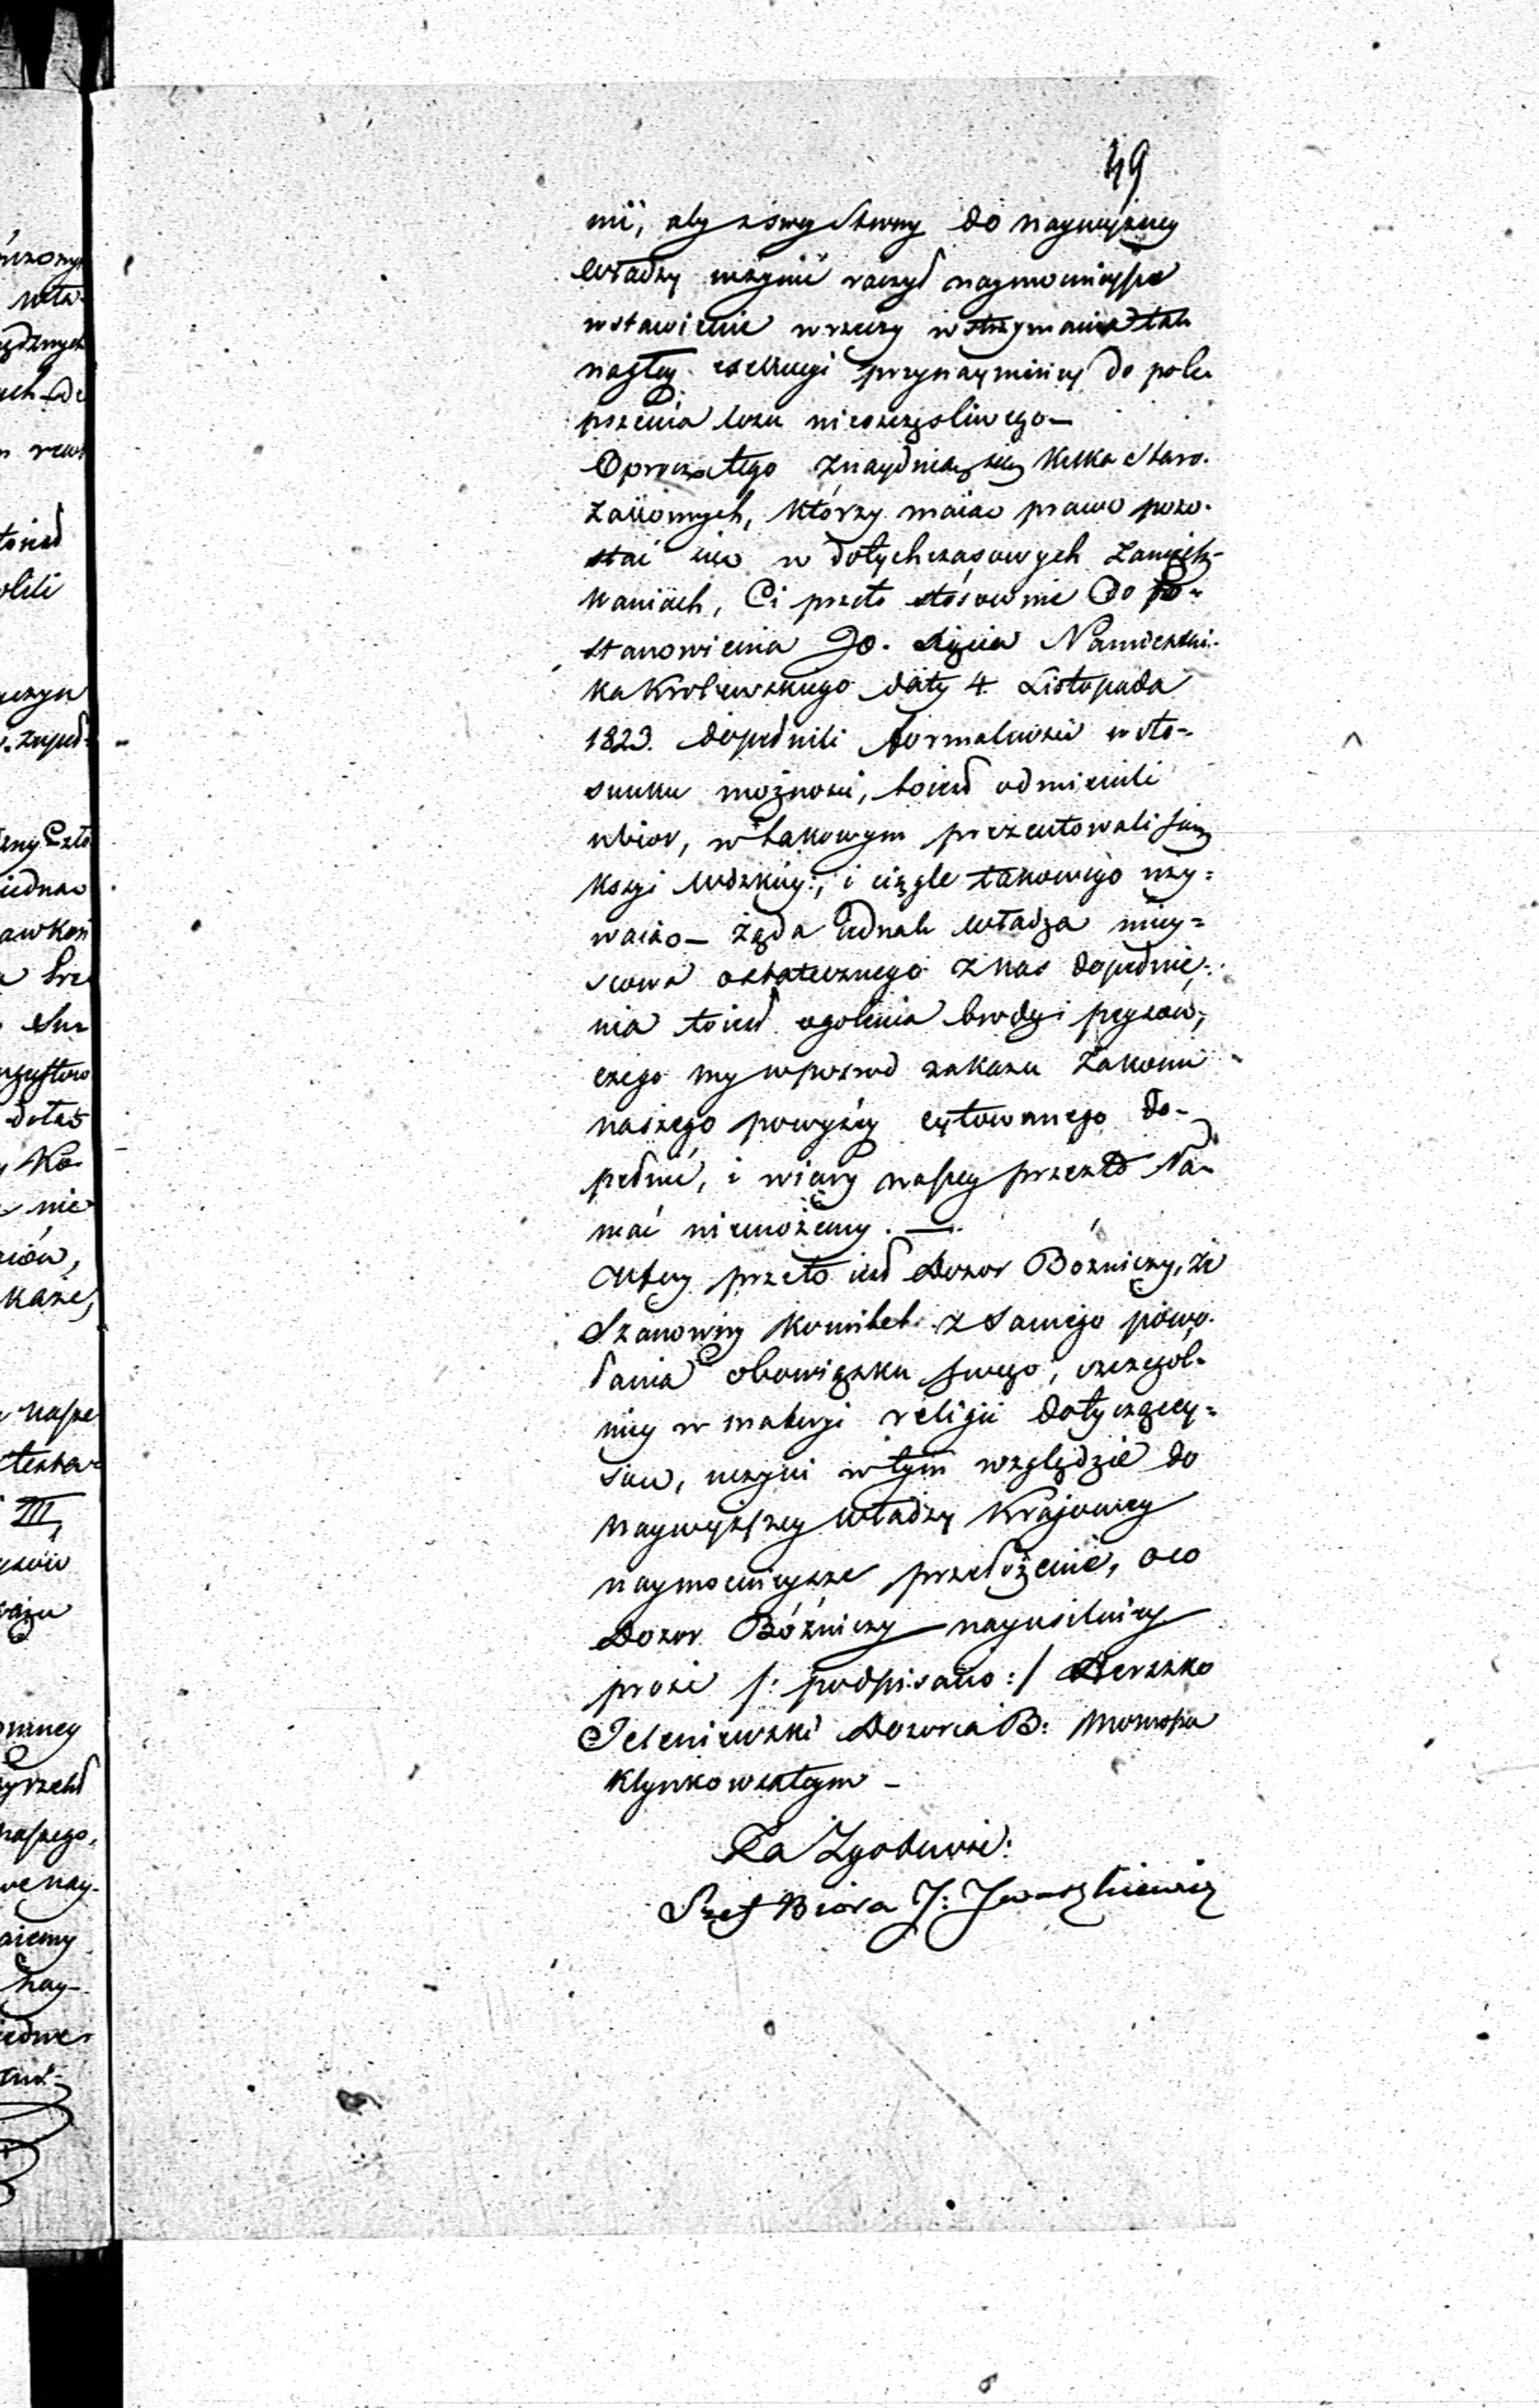 49
nii, aby z swey strony do naywyższey
władzy uczynić raczył naymocnieysze
wstawienie w rzeczy wstrzymania tak
nagłey exekucyi przynaymniey do pole-
pszenia losu nieszczęsliwego —
Oprocz tego znayduią się kilka staro-
zakonnych, którzy maiąc prawo pozo-
stać się w dotychczasowych zamiesz-
kaniach, Ci przeto stósownie do Po-
stanowienia JO. Xięcia Namiestni-
ka Krolewskiego daty 4. Listopada
1823. dopełnili formalności w sto-
sunku możnosci, toiest odmienili
ubior, w takowym prezentowali się
kcyi ludzkiey:, i ciągle takowego uży=
waią — żąda iednak władza miey=
scowa ostatecznego z nas dopełnie=
nia toiest ogolenia brody i peysow,
czego my wposrod zakazu zakonu
naszego powyżey cytowanego do-
pełnić, i wiary naszey przez to ła-
mać niemożemy. —
Ufny przeto iest Dozor Bożniczy, że
Szanowny Komitet z samego powo-
łania obowiązku swego, szczegól-
niey w materyi religii dotyczącey=
sie, uczyni w tym względzie do
naywyższey władzy Krajowey
naymocnieysze przełożenie, oco
Dozor Bóżniczy nayusilniey
prosi /: podpisano :/ Herszko
Jeleniewski Dozorca B: Monoszka
Klynkowszteyn —
Za Zgodność:
Szef Biora J: Iwaszkiewicz